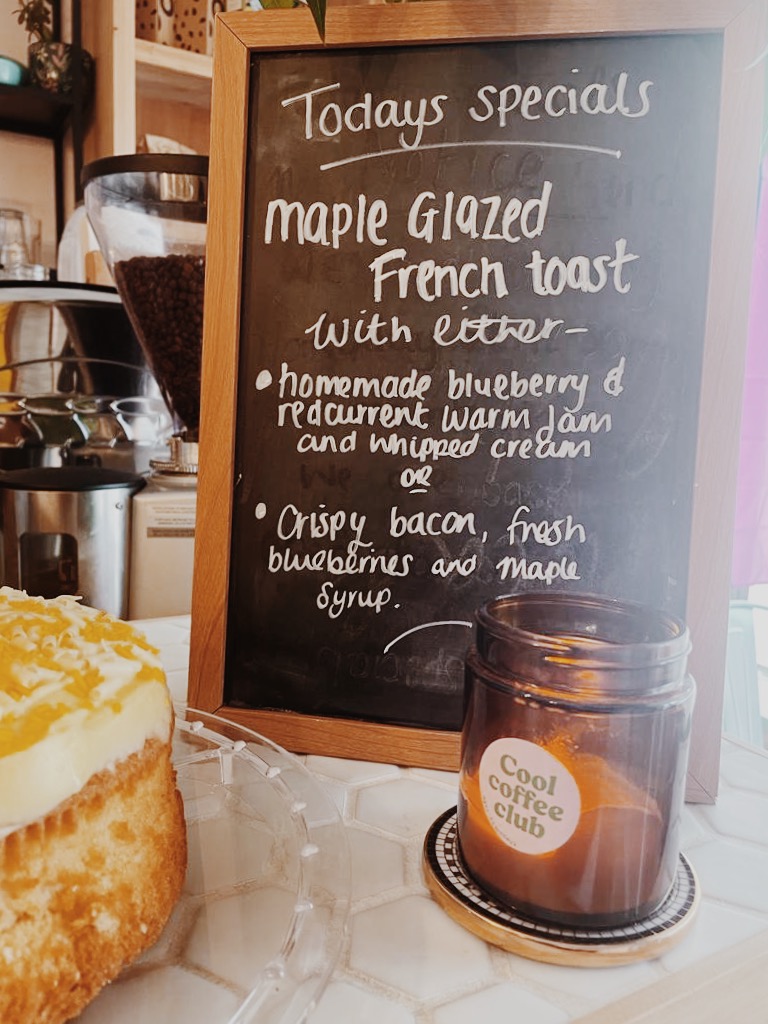 Todays specials
maple Glazed
French toast
with either-
• homemade blueberry &
redcurrent warm jam
and whipped cream
OR
• Crispy bacon, fresh
blueberries and maple
Syrup.
Cool
coffee
club